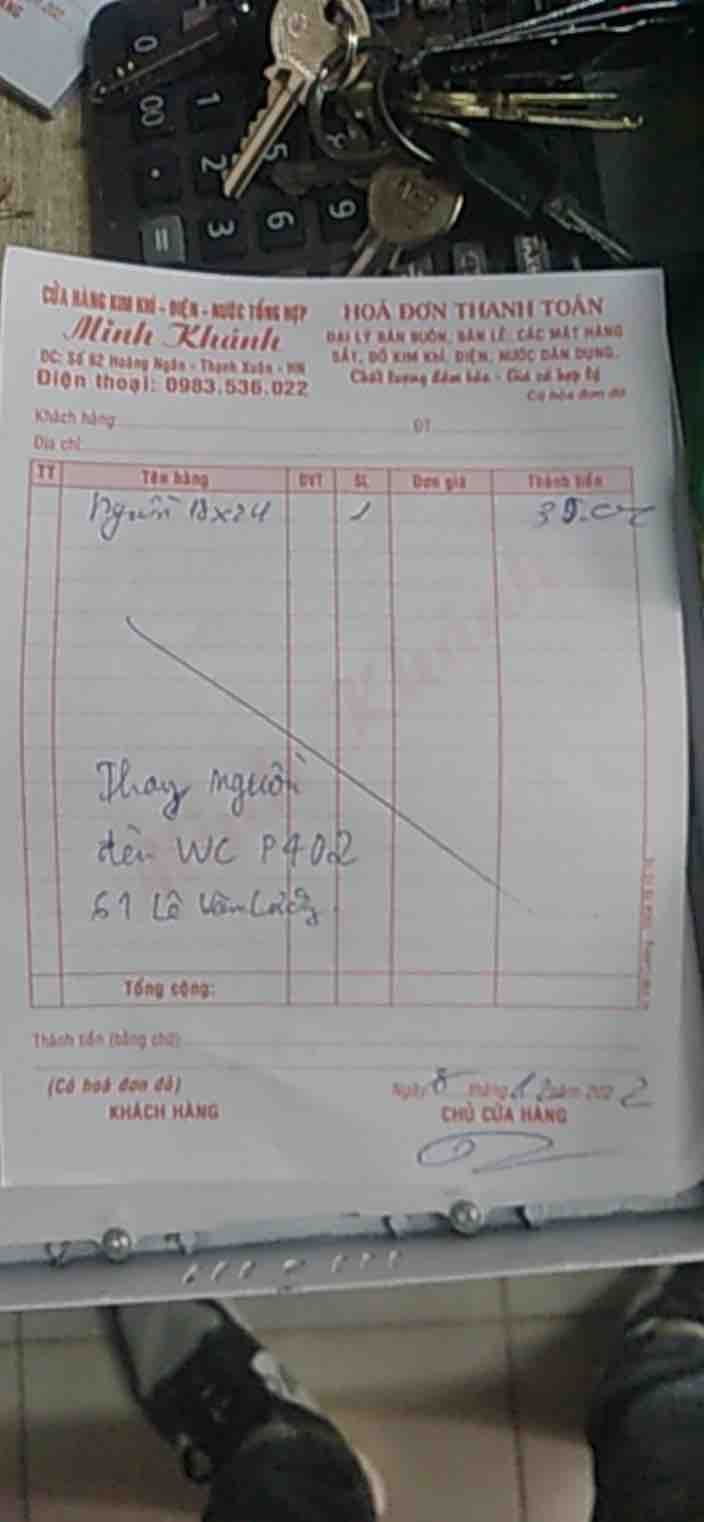 CỬA HÀNG KIM KHÍ - ĐIỆN - NƯỚC TỔNG HỢP
Minh Khánh
ĐC: Số 62 Hoàng Ngân - Thanh Xuân - HN
Điện thoại: 0983.536.022
HOÁ ĐƠN THANH TOÁN
ĐẠI LÝ BÁN BUÔN, BÁN LẺ, CÁC MẶT HÀNG
SẮT, ĐỒ KIM KHÍ, ĐIỆN, NƯỚC DÂN DỤNG.
Chất lượng đảm bảo - Giá cả hợp lý
Có hóa đơn đỏ
Khách hàng ĐT
Địa chỉ:
TT Tên hàng ĐVT SL Đơn giá Thành tiền
Nguồn 18x24 1
Thay nguồn
đèn WC P402
61 Lê Văn Lương
Tổng cộng:
Thành tiền (bằng chữ)
(Có hoá đơn đỏ)
KHÁCH HÀNG
Ngày 8 tháng 12 năm 2022
CHỦ CỬA HÀNG
0
00
.
=
1
2
3
5
6
9